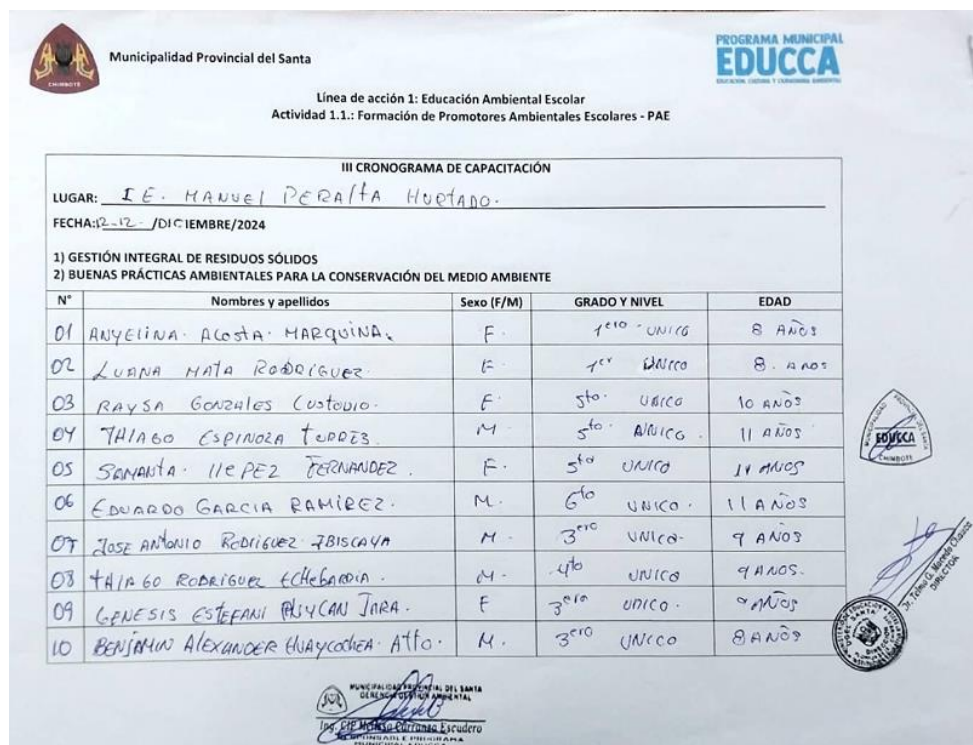 CHIMBOTE
Municipalidad Provincial del Santa
PROGRAMA MUNICIPAL
EDUCCA
EDUCACIÓN, CULTURA Y CIUDADANÍA AMBIENTAL
Línea de acción 1: Educación Ambiental Escolar
Actividad 1.1.: Formación de Promotores Ambientales Escolares - PAE
III CRONOGRAMA DE CAPACITACIÓN
LUGAR: I E. MANUEL PERALTA HURTADO.
FECHA: 12-12- /DICIEMBRE/2024
1) GESTIÓN INTEGRAL DE RESIDUOS SÓLIDOS
2) BUENAS PRÁCTICAS AMBIENTALES PARA LA CONSERVACIÓN DEL MEDIO AMBIENTE
N° Nombres y apellidos Sexo (F/M) GRADO Y NIVEL EDAD
01 ANYELINA. ACOSTA. MARQUINA. F. 1ero - UNICO 8 AÑOS
02 LUANA MATA RODRIGUEZ. F. 1er UNICO 8. AÑOS
03 RAYSA GONZALES CUSTODIO. F. 5to. UNICO 10 AÑOS
04 THIAGO ESPINOZA TORRES. M. 5to. UNICO. 11 AÑOS
05 SAMANTA. llEPEZ FERNANDEZ. F. 5to UNICO AÑOS
06 EDUARDO GARCIA RAMÍREZ. M. 6to UNICO. 11 AÑOS
07 JOSE ANTONIO RODRIGUEZ M. 3ero UNICO- 9 AÑOS
08 THIAGO RODRIGUEZ M. 4to UNICO 9 AÑOS.
09 GENESIS ESTEFANI JARA. F 3ero UNICO. AÑOS
10 BENJAMIN ALEXANDER HUAYCOCHEA. Alto. M. 3ero UNICO 8 AÑOS
EDUCCA
CHIMBOTE
DIRECTOR
MUNICIPALIDAD PROVINCIAL DEL SANTA
GERENCIA GESTIÓN AMBIENTAL
Ing. CIP Melissa Carranza Escudero
RESPONSABLE PROGRAMA
MUNICIPAL EDUCCA